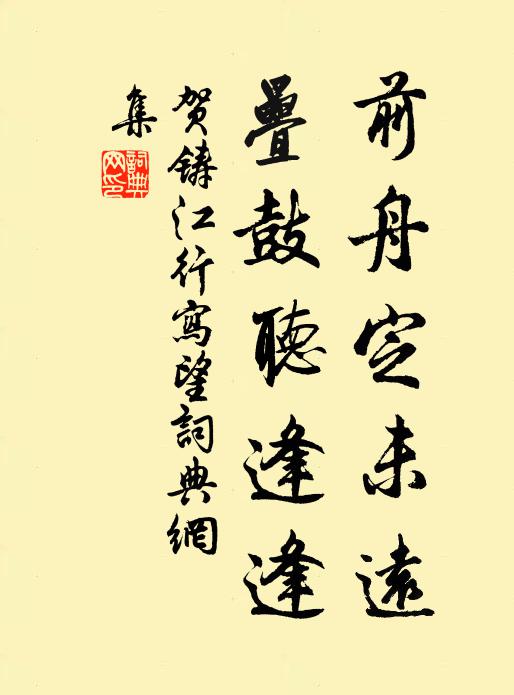 前舟定未遠
疊鼓聽逢逢
賀鑄江行寫望詞典網
集
詞典網印